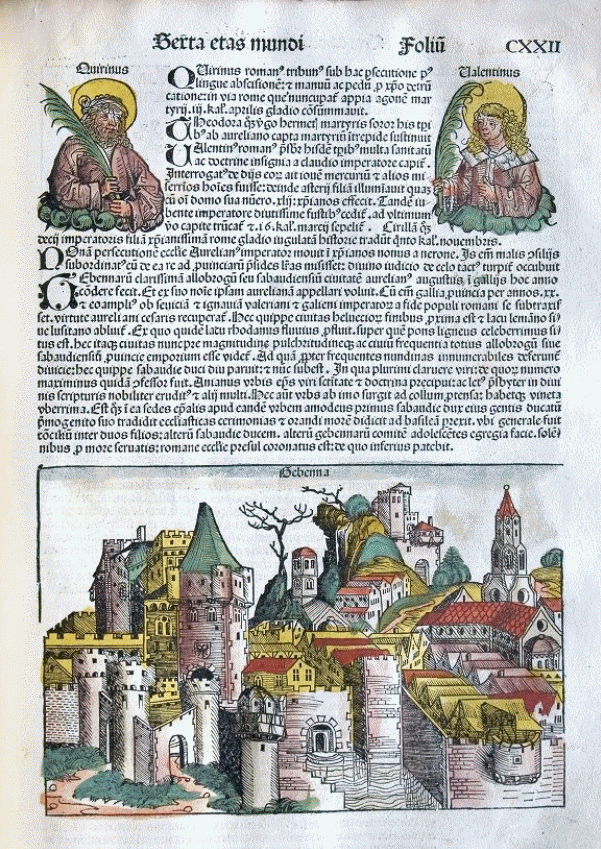 Sexta etas mundi Foliū CXXII
Quirinus
Valentinus
QUirinus roman⁹ tribun⁹ sub hac p̄secutione p⁹
lingue abscisionē: ⁊ manuū ac pedū ꝓ xp̄o detrū
catione: in via rome que nuncupat̄ appia agonē mar
tyrij. iij. kal̄. aprilis gladio cōsummauit.
THeodora q̄ꝫ ꝟgo hermet̄ martyris soror his tpi
b⁹ ab aureliano capta martyriū ītrepide sustinuit
UAlentin⁹ roman⁹ p̄sbr̄ hisdē tpib⁹ multa sanitatū
ac doctrine insignia a claudio imperatore capit̄.
Interrogat⁹ de dijs eor̄ ait iouē mercuriū ⁊ alios mi
serrīos hoīes fuisse: deinde asterij filiā illumīauit quaꝫ
cū oī domo sua nūero. xlij. xp̄ianos effecit. Tandē iu
bente imperatore diutissime fustib⁹ cedit̄. ad vltimum
ꝟo capite trūcat̄ ⁊. i6. kal̄. marcij sepelit̄. Cirillā q̄ꝫ
decij imperatoris filiā xp̄ianissimā rome gladio iugulatā historie tradūt q̄nto kal̄. nouembris.
NOnā persecutionē ecclīe Aurelian⁹ imperator mouit ī xp̄ianos nonus a nerone. Is em̄ malis ꝯsilijs
subordinat⁹ cū de ea re ad ꝓuinciarū p̄sides l̄ras misisset: diuino iudicio de celo tact⁹ turpit̄ occubuit
GEbennarū clarissimā allobrogū seu sabaudiensiū ciuitatē aurelian⁹ augustus ī gallijs hoc anno
cōdere fecit. Et ex suo noīe ipsam aurelianā appellare voluit. Cū em̄ gallia ꝓuincia per annos. xx.
⁊ eo amplī⁹ ob seuiciā ⁊ ignauiā valeriani ⁊ galieni imperatoꝝ a fide populi romani se subtraxis
set. virtute aureliani cesaris recuperat̄. Hec quippe ciuitas heluecioꝝ finibus ꝓxima est ⁊ lacu lemāno si
ue lusitano abluit̄. Ex quo quidē lacu rhodanus fluuius ꝓfluit. super quē pons ligneus celeberrimus si
tus est. hec itaq̄ꝫ ciuitas nuncpre magnitudine pulchritudineq̄ꝫ ac ciuiū frequentia totius allobrogū siue
sabaudiensiū ꝓuincie emporium esse videt̄. Ad quā ꝓpter frequentes nundinas innumerabiles deferunt̄
diuicie: hec quippe sabaudie duci diu paruit: ⁊ nūc subest. In qua plurimi claruere viri: de quoꝝ numero
maximinus quidā ꝯfessor fuit. Anianus vrbis ep̄s viri sc̄titate ⁊ doctrina precipui: ac leō p̄sbyter in diui
nis scripturis nobiliter erudit⁹ ⁊ alij multi. Hec aūt vrbs ab imo surgit ad collum ꝓtensa: habetq̄ꝫ vineta
vberrima. Est q̄ꝫ ī ea sedes ep̄alis apud eandē vrbem amodeus primus sabaudie dux eius gentis ducatū
p̄mogenito suo tradidit ecclīasticas cerimonias ⁊ orandi morē didicit ad basileā prexit. vbi generale fuit
cōciliū inter duos filios: alterū sabaudie ducem. alterū gebennarū comitē adolescētes egregia facie. solēni
nibus ꝓ more seruatis: romane ecclīe presul coronatus est: de quo inferius patebit.
Gebenna